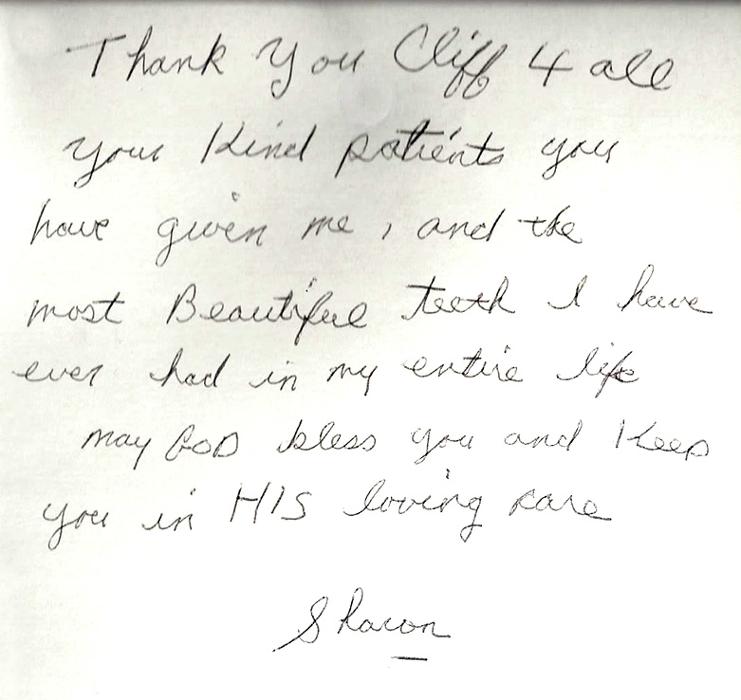 Thank You Cliff 4 all
your Kind patients you
have given me, and the
most Beautiful teeth I have
ever had in my entire life
may GOD bless you and Keep
you in HIS loving care
Sharon